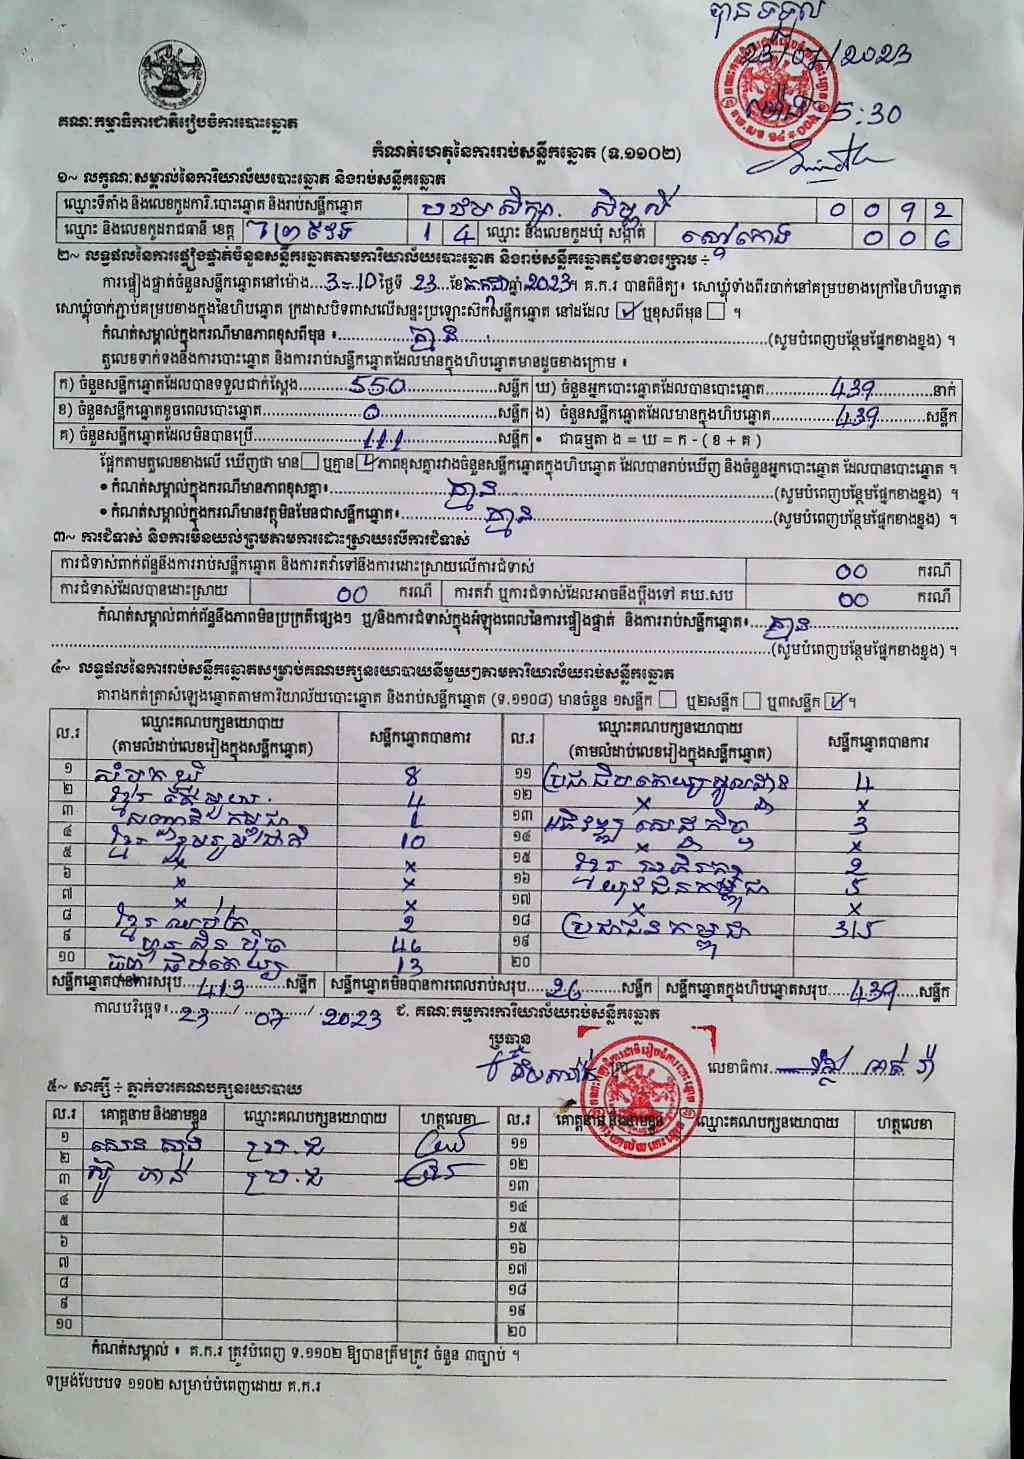 បានទទួល
23/07/2023
ម៉ោង 5:30
គណៈកម្មាធិការជាតិរៀបចំការបោះឆ្នោត
កំណត់ហេតុនៃការរាប់សន្លឹកឆ្នោត (ទ.១១០២)
១~ លក្ខណៈសម្គាល់នៃការិយាល័យបោះឆ្នោត និងរាប់សន្លឹកឆ្នោត
ឈ្មោះទីតាំង និងលេខកូដការិ.បោះឆ្នោត និងរាប់សន្លឹកឆ្នោត បឋមសិក្សា. 0 0 9 2
ឈ្មោះ និងលេខកូដរាជធានី ខេត្ត ព្រៃវែង 1 4 ឈ្មោះ និងលេខកូដឃុំ សង្កាត់ 0 0 6
២~ លទ្ធផលនៃការផ្ទៀងផ្ទាត់ចំនួនសន្លឹកឆ្នោតតាមការិយាល័យបោះឆ្នោត និងរាប់សន្លឹកឆ្នោតដូចខាងក្រោម ÷
ការផ្ទៀងផ្ទាត់ចំនួនសន្លឹកឆ្នោតនៅម៉ោង...3=10 ថ្ងៃទី 23 ខែកក្កដា ឆ្នាំ 2023។ គ.ក.រ បានពិនិត្យ៖ សោឃ្លុំទាំងពីរចាក់នៅគម្របខាងក្រៅនៃហិបឆ្នោត
សោឃ្លុំចាក់ភ្ជាប់គម្របខាងក្នុងនៃហិបឆ្នោត ក្រដាសបិទពាសលើសន្ទះប្រឡោះស៊កសន្លឹកឆ្នោត នៅដដែល ☑ ឬខុសពីមុន ☐ ។
កំណត់សម្គាល់ក្នុងករណីមានភាពខុសពីមុន ៖ គ្មាន (សូមបំពេញបន្ថែមផ្នែកខាងខ្នង) ។
តួលេខទាក់ទងនឹងការបោះឆ្នោត និងការរាប់សន្លឹកឆ្នោតដែលមានក្នុងហិបឆ្នោតមានដូចខាងក្រោម ៖
ក) ចំនួនសន្លឹកឆ្នោតដែលបានទទួលជាក់ស្ដែង 550 សន្លឹក ឃ) ចំនួនអ្នកបោះឆ្នោតដែលបានបោះឆ្នោត 439 នាក់
ខ) ចំនួនសន្លឹកឆ្នោតខូចពេលបោះឆ្នោត 0 សន្លឹក ង) ចំនួនសន្លឹកឆ្នោតដែលមានក្នុងហិបឆ្នោត 439 សន្លឹក
គ) ចំនួនសន្លឹកឆ្នោតដែលមិនបានប្រើ 111 សន្លឹក • ជាធម្មតា ង = ឃ = ក - ( ខ + គ )
ផ្អែកតាមតួលេខខាងលើ ឃើញថា មាន ☐ ឬគ្មាន ☑ ភាពខុសគ្នារវាងចំនួនសន្លឹកឆ្នោតក្នុងហិបឆ្នោត ដែលបានរាប់ឃើញ និងចំនួនអ្នកបោះឆ្នោត ដែលបានបោះឆ្នោត ។
• កំណត់សម្គាល់ក្នុងករណីមានភាពខុសគ្នា៖ គ្មាន (សូមបំពេញបន្ថែមផ្នែកខាងខ្នង) ។
• កំណត់សម្គាល់ក្នុងករណីមានវត្ថុមិនមែនជាសន្លឹកឆ្នោត៖ គ្មាន (សូមបំពេញបន្ថែមផ្នែកខាងខ្នង) ។
៣~ ការជំទាស់ និងការមិនយល់ព្រមតាមការដោះស្រាយលើការជំទាស់
ការជំទាស់ពាក់ព័ន្ធនឹងការរាប់សន្លឹកឆ្នោត និងការតវ៉ាទៅនឹងការដោះស្រាយលើការជំទាស់ 00 ករណី
ការជំទាស់ដែលបានដោះស្រាយ 00 ករណី ការតវ៉ា ឬការជំទាស់ដែលអាចនឹងប្ដឹងទៅ គឃ.សប 00 ករណី
កំណត់សម្គាល់ពាក់ព័ន្ធនឹងភាពមិនប្រក្រតីផ្សេងៗ ឬ/និងការជំទាស់ក្នុងអំឡុងពេលនៃការផ្ទៀងផ្ទាត់ និងការរាប់សន្លឹកឆ្នោត៖ គ្មាន
(សូមបំពេញបន្ថែមផ្នែកខាងខ្នង) ។
៤~ លទ្ធផលនៃការរាប់សន្លឹកឆ្នោតសម្រាប់គណបក្សនយោបាយនីមួយៗតាមការិយាល័យរាប់សន្លឹកឆ្នោត
តារាងកត់ត្រាសំឡេងឆ្នោតតាមការិយាល័យបោះឆ្នោត និងរាប់សន្លឹកឆ្នោត (ទ.១១០៨) មានចំនួន ១សន្លឹក ☐ ឬ២សន្លឹក ☐ ឬ៣សន្លឹក ☑ ។
ល.រ ឈ្មោះគណបក្សនយោបាយ (តាមលំដាប់លេខរៀងក្នុងសន្លឹកឆ្នោត) សន្លឹកឆ្នោតបានការ ល.រ ឈ្មោះគណបក្សនយោបាយ (តាមលំដាប់លេខរៀងក្នុងសន្លឹកឆ្នោត) សន្លឹកឆ្នោតបានការ
១ 8 ១១ ប្រជាធិបតេយ្យមូលដ្ឋាន 4
២ 4 ១២ × ×
៣ សញ្ជាតិកម្ពុជា 1 ១៣ 3
៤ ខ្មែររួបរួមជាតិ 10 ១៤ × ×
៥ × × ១៥ ខ្មែរ 2
៦ × × ១៦ យុវជនកម្ពុជា 5
៧ × × ១៧ × ×
៨ ខ្មែរ 2 ១៨ ប្រជាជនកម្ពុជា 315
៩ ហ៊្វុនស៊ិនប៉ិច 46 ១៩
១០ 13 ២០
សន្លឹកឆ្នោតបានការសរុប 413 សន្លឹក សន្លឹកឆ្នោតមិនបានការពេលរាប់សរុប 26 សន្លឹក សន្លឹកឆ្នោតក្នុងហិបឆ្នោតសរុប 439 សន្លឹក
កាលបរិច្ឆេទ៖ 23 / 07 / 2023 ជ. គណៈកម្មការការិយាល័យរាប់សន្លឹកឆ្នោត
ប្រធាន
លេខាធិការ
៥~ សាក្សី ÷ ភ្នាក់ងារគណបក្សនយោបាយ
ល.រ គោត្តនាម និងនាមខ្លួន ឈ្មោះគណបក្សនយោបាយ ហត្ថលេខា ល.រ គោត្តនាម និងនាមខ្លួន ឈ្មោះគណបក្សនយោបាយ ហត្ថលេខា
១ ប្រ.ជ ១១
២ ១២
៣ ប្រ.ជ ១៣
៤ ១៤
៥ ១៥
៦ ១៦
៧ ១៧
៨ ១៨
៩ ១៩
១០ ២០
កំណត់សម្គាល់ ៖ គ.ក.រ ត្រូវបំពេញ ទ.១១០២ ឱ្យបានត្រឹមត្រូវ ចំនួន ៣ច្បាប់ ។
ទម្រង់បែបបទ ១១០២ សម្រាប់បំពេញដោយ គ.ក.រ